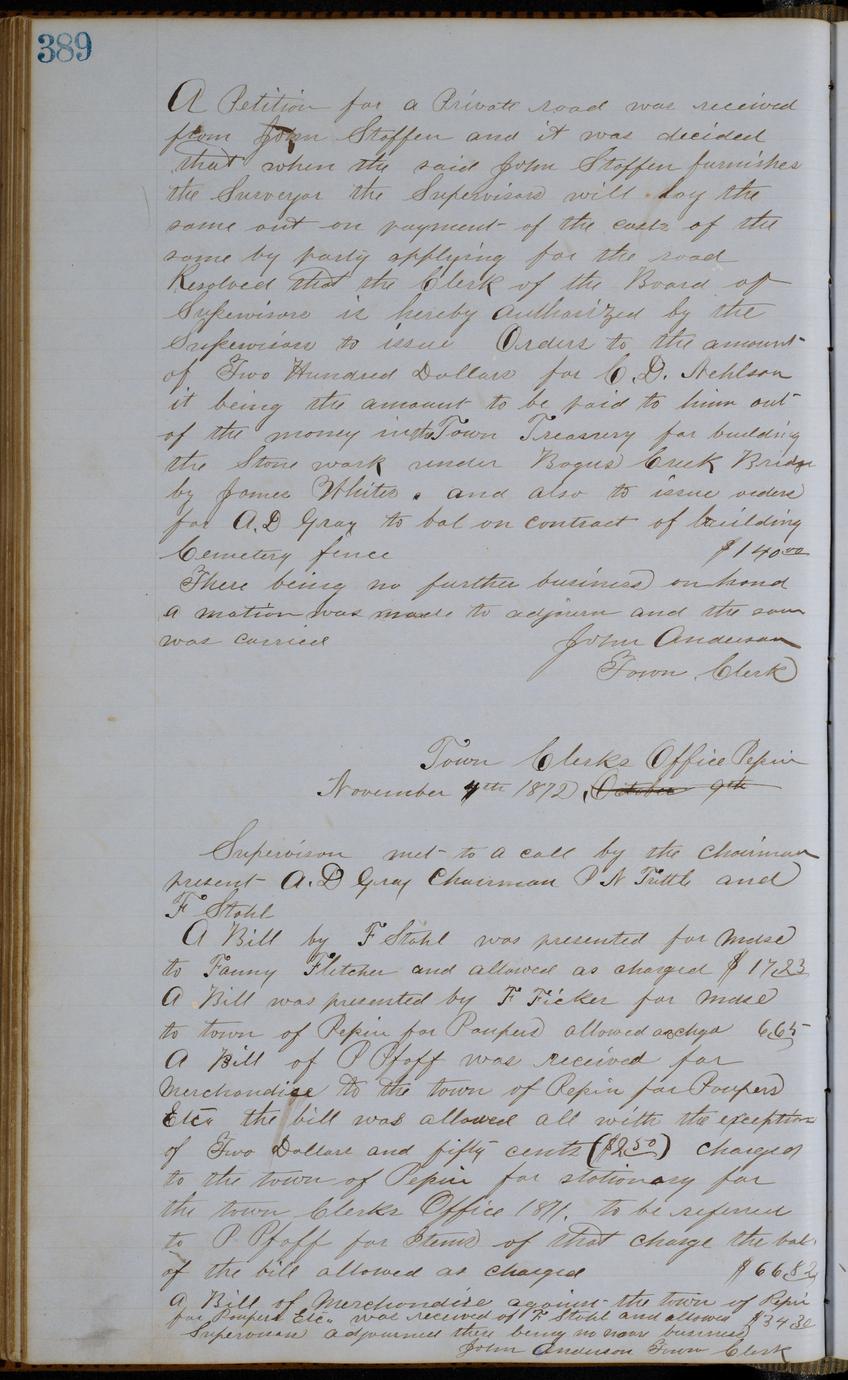 389
A Petition for a Private road was received
from John Staffen and it was decided
that when the said John Staffen furnishes
the Surveyor the Supervisors will lay the
same out on payment of the costs of the
same by party applying for the road
Resolved that the Clerk of the Board of
Supervisors is hereby authorized by the
Supervisors to issue Orders to the amount
of Two Hundred Dollars for C.D. Nehlson
it being the amount to be paid to him out
of the money in the Town Treassery for building
the Stone work under Bogus Creek Bridge
by James White. and also to issue orders
for A.D Gray to bal on contract of building
Cemetery fence $140.00
There being no further business on hand
a motion was made to adjourn and the same
was carried John Anderson
Town Clerk
Town Clerks Office Pepin
November 4th 1872, October 9th
Supervisors met to a call by the chairman
present A.D Gray Chairman P N Tuttle and
F Stahl
A Bill by F Stahl was presented for mdse
to Fanny Fletcher and allowed as charged $17.23
A Bill was presented by F Ficker for mdse
to town of Pepin for Paupers allowed as chgd 6.65
A Bill of P Pfaff was received for
Merchandise to the town of Pepin for Paupers
Etc. the bill was allowed all with the exception
of Two Dollars and fifty cents ($2.50) charged
to the town of Pepin for stationary for
the town Clerks Office 1871. to be referred
to P. Pfaff for Items of that charge the bal.
of the bill allowed as charged $66.82
A Bill of Merchandise against the town of Pepin
for Paupers Etc. was received of F Stahl and allowed $34.30
Supervisors adjourned there being no more business
John Anderson Town Clerk